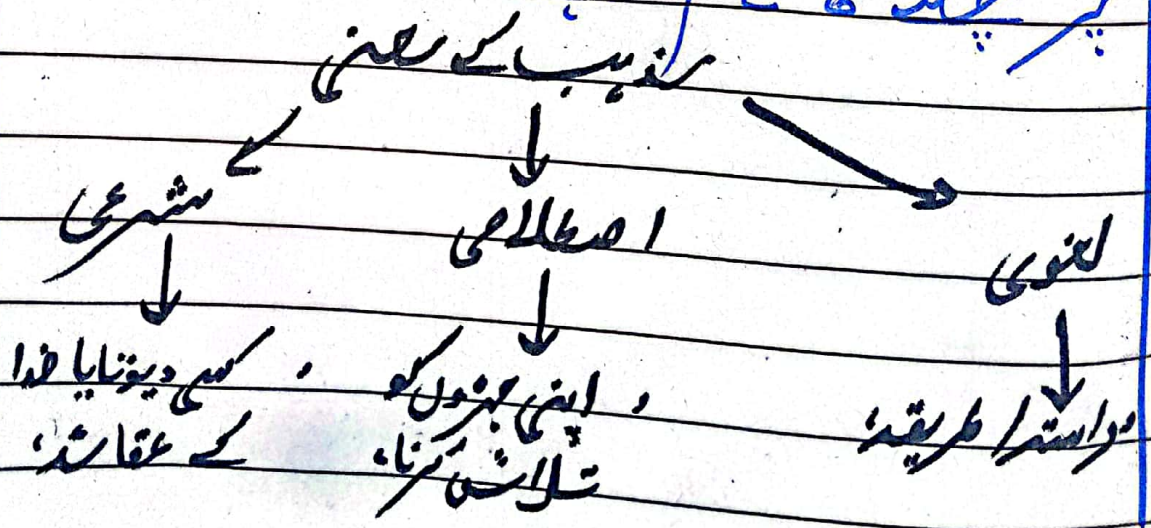 مذہب کے معنی
لغوی
اصطلاحی
شرعی
راستہ / طریقہ،
اپنی جڑوں کو
تلاش کرنا،
کسی دیوتا یا خدا
کے عقائد،